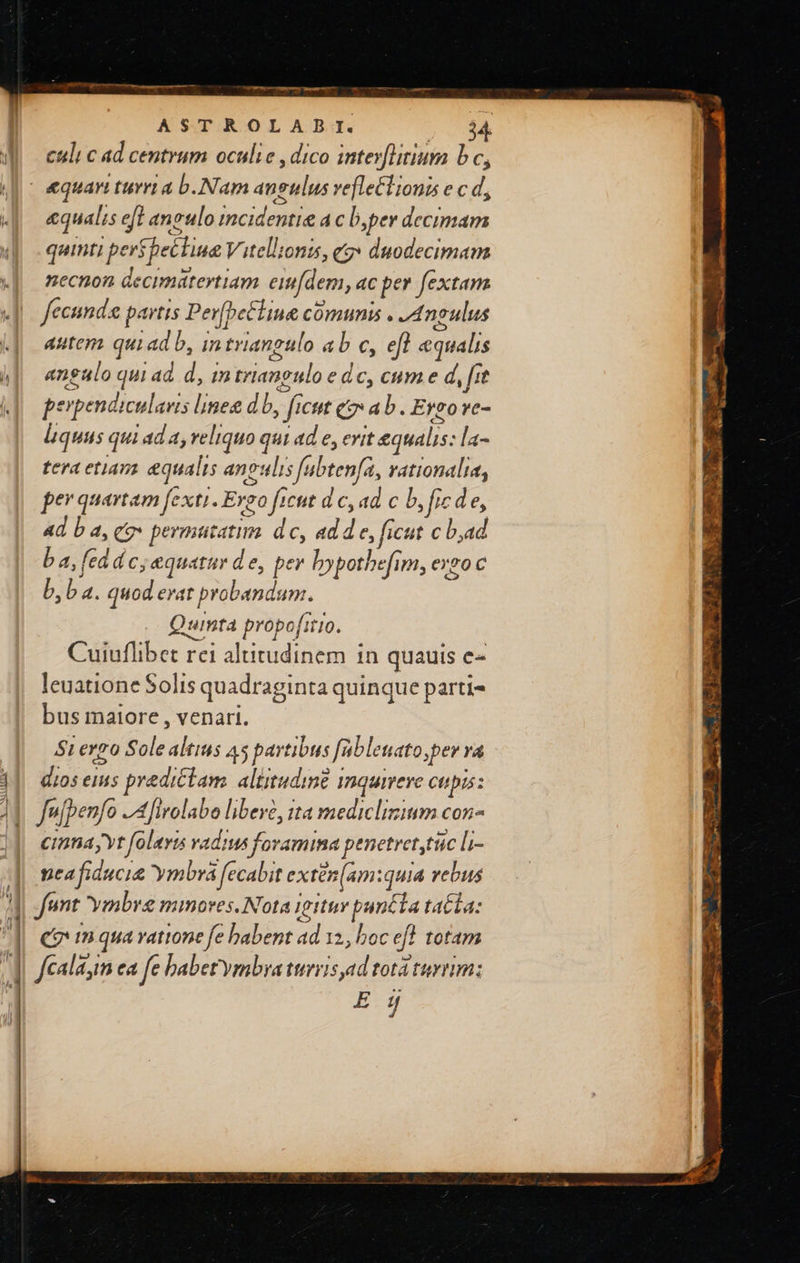 ASTROLABI. 34
culi c ad centrum oculi e, dico interſtitium b c,
æquari turri a b. Nam angulus reflectionis e c d,
æqualis eſt angulo incidentiæ a c b, per decimam
quinti perſpectiuæ Vitellionis, & duodecimam
necnon decimātertiam eiuſdem, ac per ſextam
ſecundæ partis Perſpectiuæ cōmunis. Angulus
autem qui ad b, in triangulo a b c, eſt æqualis
angulo qui ad d, in triangulo e d c, cum e d, ſit
perpendicularis lineæ d b, ſicut & a b. Ergo re-
liquus qui ad a, reliquo qui ad e, erit æqualis: la-
tera etiam æqualis angulis ſubtenſa, rationalia,
per quartam ſexti. Ergo ſicut d c, ad c b, ſic d e,
ad b a, & permutatim d c, ad d e, ſicut c b, ad
b a, ſed d c, æquatur d e, per hypotheſim, ergo c
b, b a. quod erat probandum.
Quinta propoſitio.
Cuiuſlibet rei altitudinem in quauis e-
leuatione Solis quadraginta quinque parti-
bus maiore, venari.
Si ergo Sole altius 45 partibus ſubleuato, per ra
dios eius prædictam altitudinē inquirere cupis:
ſuſpenſo Aſtrolabo liberè, ita mediclinium con-
cinna, vt ſolaris radius foramina penetret, tūc li-
nea fiduciæ vmbrā ſecabit extēſam: quia rebus
ſunt vmbræ minores. Nota igitur puncta tacta:
& in qua ratione ſe habent ad 12, hoc eſt totam
ſcalā, in ea ſe habet vmbra turris, ad totā turrim:
E ij